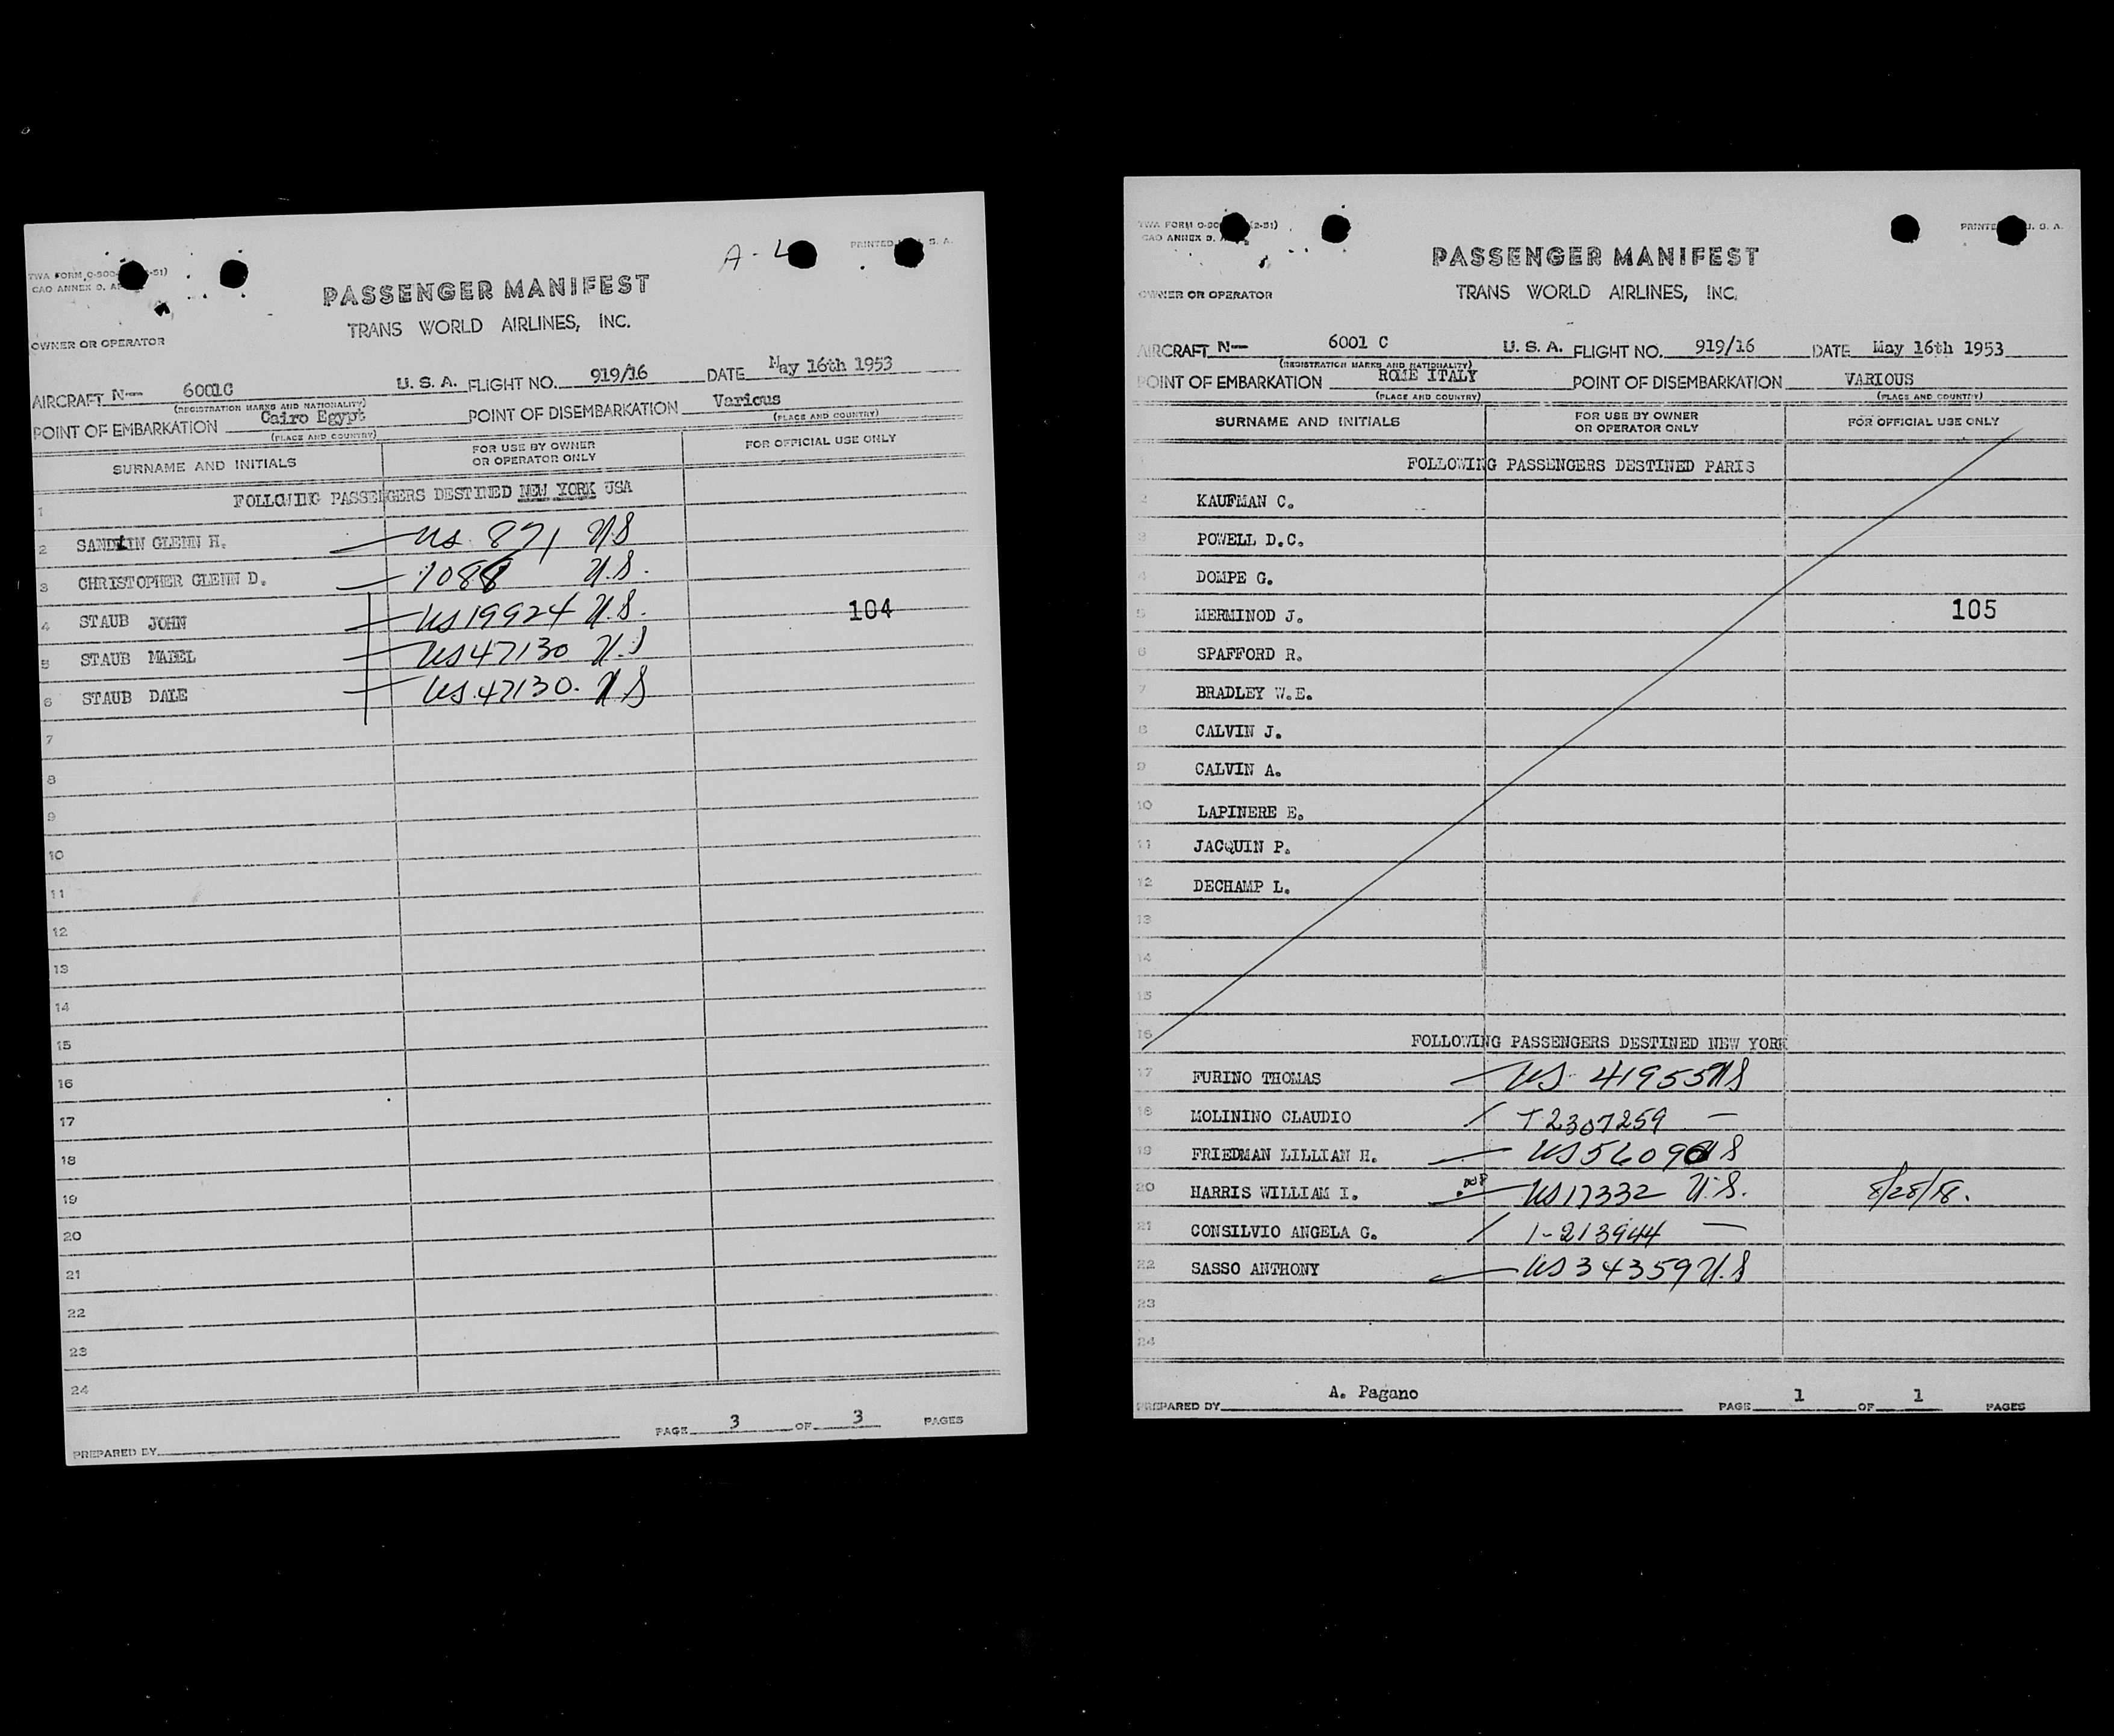 A-4
PRINTED U. S. A.
TWA FORM O-900
CAO ANNEX 9. A
PASSENGER MANIFEST
TRANS WORLD AIRLINES, INC.
OWNER OR OPERATOR
AIRCRAFT N— 6001C U. S. A. FLIGHT NO. 919/16 DATE May 16th 1953
(REGISTRATION MARKS AND NATIONALITY)
POINT OF EMBARKATION Cairo Egypt POINT OF DISEMBARKATION Various
(PLACE AND COUNTRY) (PLACE AND COUNTRY)
SURNAME AND INITIALS FOR USE BY OWNER OR OPERATOR ONLY FOR OFFICIAL USE ONLY
1 FOLLOWING PASSENGERS DESTINED NEW YORK USA
2 SANDLIN GLENN H. US 871 U.S
3 CHRISTOPHER GLENN D. 1088 U.S.
4 STAUB JOHN US19924 U.S. 104
5 STAUB MABEL US47130 U.S
6 STAUB DALE US.47130. U.S
7
8
9
10
11
12
13
14
15
16
17
18
19
20
21
22
23
24
PAGE 3 OF 3 PAGES
PREPARED BY
TWA FORM O-900 (2-51)
CAO ANNEX 9. A
PRINTED U. S. A.
PASSENGER MANIFEST
TRANS WORLD AIRLINES, INC.
OWNER OR OPERATOR
AIRCRAFT N— 6001 C U. S. A. FLIGHT NO. 919/16 DATE May 16th 1953
(REGISTRATION MARKS AND NATIONALITY)
POINT OF EMBARKATION ROME ITALY POINT OF DISEMBARKATION VARIOUS
(PLACE AND COUNTRY) (PLACE AND COUNTRY)
SURNAME AND INITIALS FOR USE BY OWNER OR OPERATOR ONLY FOR OFFICIAL USE ONLY
1 FOLLOWING PASSENGERS DESTINED PARIS
2 KAUFMAN C.
3 POWELL D.C.
4 DOMPE G.
5 MERMINOD J. 105
6 SPAFFORD R.
7 BRADLEY W.E.
8 CALVIN J.
9 CALVIN A.
10 LAPINERE E.
11 JACQUIN P.
12 DECHAMP L.
13
14
15
16 FOLLOWING PASSENGERS DESTINED NEW YORK
17 FURINO THOMAS US. 41955 U.S
18 MOLININO CLAUDIO T2307259 —
19 FRIEDMAN LILLIAN H. US56090 U.S
20 HARRIS WILLIAM I. US17332 U.S. 8/28/18.
21 CONSILVIO ANGELA G. 1-213944 —
22 SASSO ANTHONY US34359 U.S
23
24
PREPARED BY A. Pagano PAGE 1 OF 1 PAGES